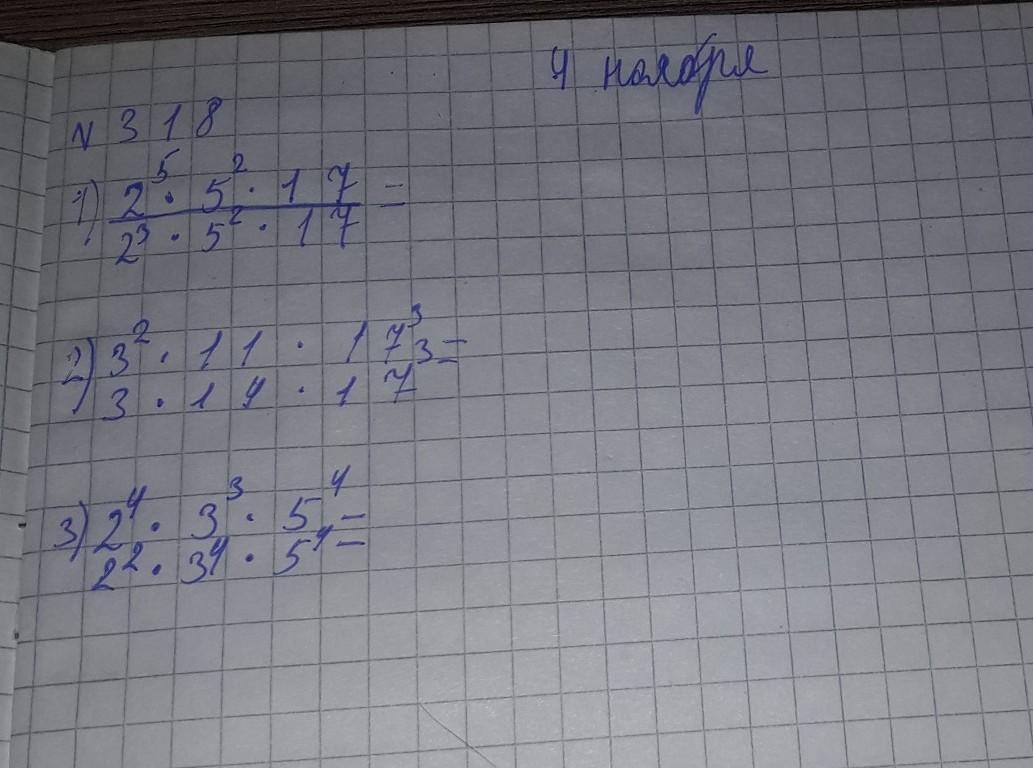 4 ноября
N 318
1) 2⁵ · 5² · 17 =
2³ · 5² · 17
2) 3² · 11 · 17³ =
3 · 14 · 17³
3) 2⁴ · 3³ · 5⁴ =
2² · 3⁴ · 5⁴